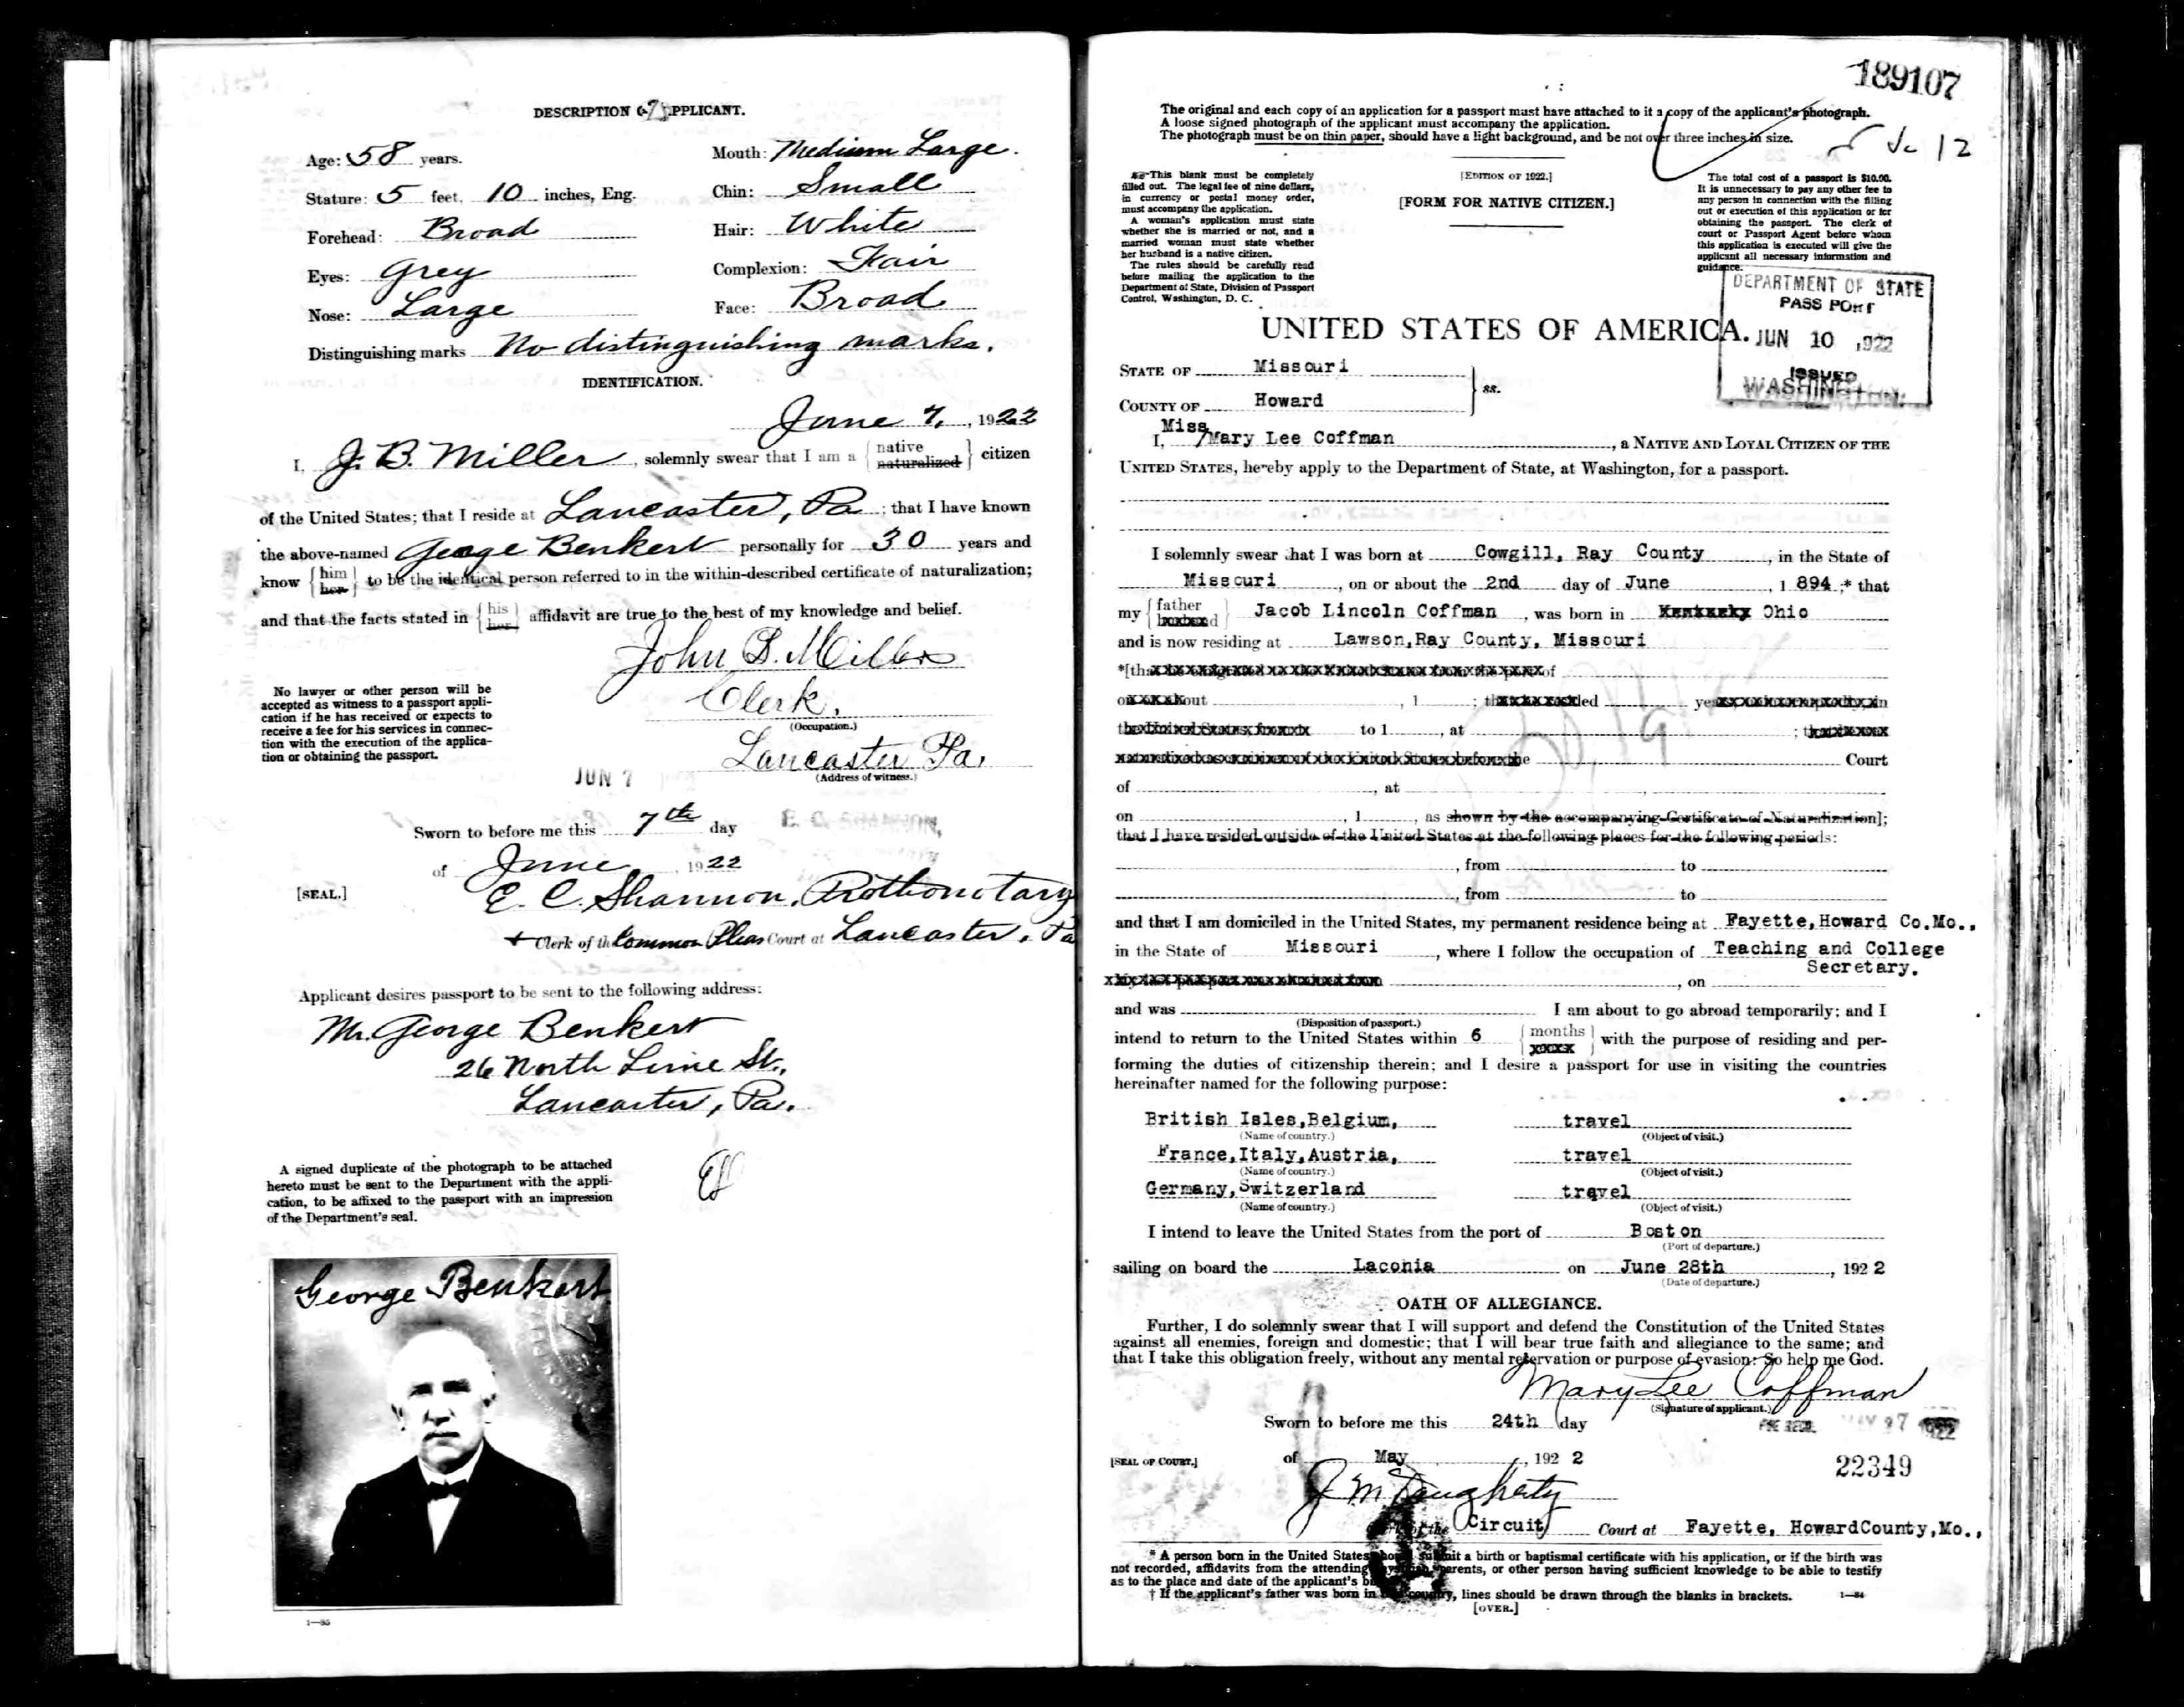 DESCRIPTION OF APPLICANT.
Age: 58 years.
Mouth: Medium Large.
Stature: 5 feet, 10 inches, Eng.
Chin: Small
Forehead: Broad
Hair: White
Eyes: Grey
Complexion: Fair
Nose: Large
Face: Broad
Distinguishing marks No distinguishing marks.
IDENTIFICATION.
June 7, 1922
I, J. B. Miller, solemnly swear that I am a { native naturalized } citizen
of the United States; that I reside at Lancaster, Pa; that I have known
the above-named George Benkert personally for 30 years and
know { him her } to be the identical person referred to in the within-described certificate of naturalization;
and that the facts stated in { his her } affidavit are true to the best of my knowledge and belief.
John B. Miller
No lawyer or other person will be
accepted as witness to a passport appli-
cation if he has received or expects to
receive a fee for his services in connec-
tion with the execution of the applica-
tion or obtaining the passport.
Clerk.
(Occupation.)
Lancaster Pa.
(Address of witness.)
JUN 7
Sworn to before me this 7th day
of June 1922
[SEAL.]
E. C. Shannon, Prothonotary
+ Clerk of th Common Pleas Court at Lancaster, Pa
Applicant desires passport to be sent to the following address:
Mr. George Benkert
26 North Lime St.,
Lancaster, Pa.
A signed duplicate of the photograph to be attached
hereto must be sent to the Department with the appli-
cation, to be affixed to the passport with an impression
of the Department's seal.
George Benkert
1—85
189107
The original and each copy of an application for a passport must have attached to it a copy of the applicant's photograph.
A loose signed photograph of the applicant must accompany the application.
The photograph must be on thin paper, should have a light background, and be not over three inches in size.
12
This blank must be completely
filled out. The legal fee of nine dollars,
in currency or postal money order,
must accompany the application.
A woman's application must state
whether she is married or not, and a
married woman must state whether
her husband is a native citizen.
The rules should be carefully read
before mailing the application to the
Department of State, Division of Passport
Control, Washington, D. C.
[EDITION OF 1922.]
[FORM FOR NATIVE CITIZEN.]
The total cost of a passport is $10.00.
It is unnecessary to pay any other fee to
any person in connection with the filling
out or execution of this application or for
obtaining the passport. The clerk of
court or Passport Agent before whom
this application is executed will give the
applicant all necessary information and
guidance.
DEPARTMENT OF STATE
PASS PORT
JUN 10 1922
ISSUED
WASHINGTON
UNITED STATES OF AMERICA.
STATE OF Missouri
COUNTY OF Howard
ss.
Miss
I, /Mary Lee Coffman, a NATIVE AND LOYAL CITIZEN OF THE
UNITED STATES, hereby apply to the Department of State, at Washington, for a passport.
I solemnly swear that I was born at Cowgill, Ray County, in the State of
Missouri, on or about the 2nd day of June, 1 894;* that
my { father husband } Jacob Lincoln Coffman, was born in Kentucky Ohio
and is now residing at Lawson,Ray County, Missouri
to 1, at
Court
of, at
on, 1, as shown by the accompanying Certificate of Naturalization];
that I have resided outside of the United States at the following places for the following periods:
, from to
, from to
and that I am domiciled in the United States, my permanent residence being at Fayette,Howard Co.Mo.,
in the State of Missouri, where I follow the occupation of Teaching and College
Secretary.
, on
and was I am about to go abroad temporarily; and I
(Disposition of passport.)
intend to return to the United States within 6 { months xxxx } with the purpose of residing and per-
forming the duties of citizenship therein; and I desire a passport for use in visiting the countries
hereinafter named for the following purpose:
British Isles,Belgium, travel
(Name of country.) (Object of visit.)
France,Italy,Austria, travel
(Name of country.) (Object of visit.)
Germany,Switzerland travel
(Name of country.) (Object of visit.)
I intend to leave the United States from the port of Boston
(Port of departure.)
sailing on board the Laconia on June 28th, 192 2
(Date of departure.)
OATH OF ALLEGIANCE.
Further, I do solemnly swear that I will support and defend the Constitution of the United States
against all enemies, foreign and domestic; that I will bear true faith and allegiance to the same; and
that I take this obligation freely, without any mental reservation or purpose of evasion: So help me God.
Mary Lee Coffman
(Signature of applicant.)
Sworn to before me this 24th day
FEE RECD. MAY 27 1922
[SEAL OF COURT.]
of May, 192 2
22349
J M Daugherty
Clerk of the Circuit Court at Fayette, HowardCounty,Mo.,
* A person born in the United States should submit a birth or baptismal certificate with his application, or if the birth was
not recorded, affidavits from the attending physician, parents, or other person having sufficient knowledge to be able to testify
as to the place and date of the applicant's birth
† If the applicant's father was born in this country, lines should be drawn through the blanks in brackets. 1—84
[OVER.]